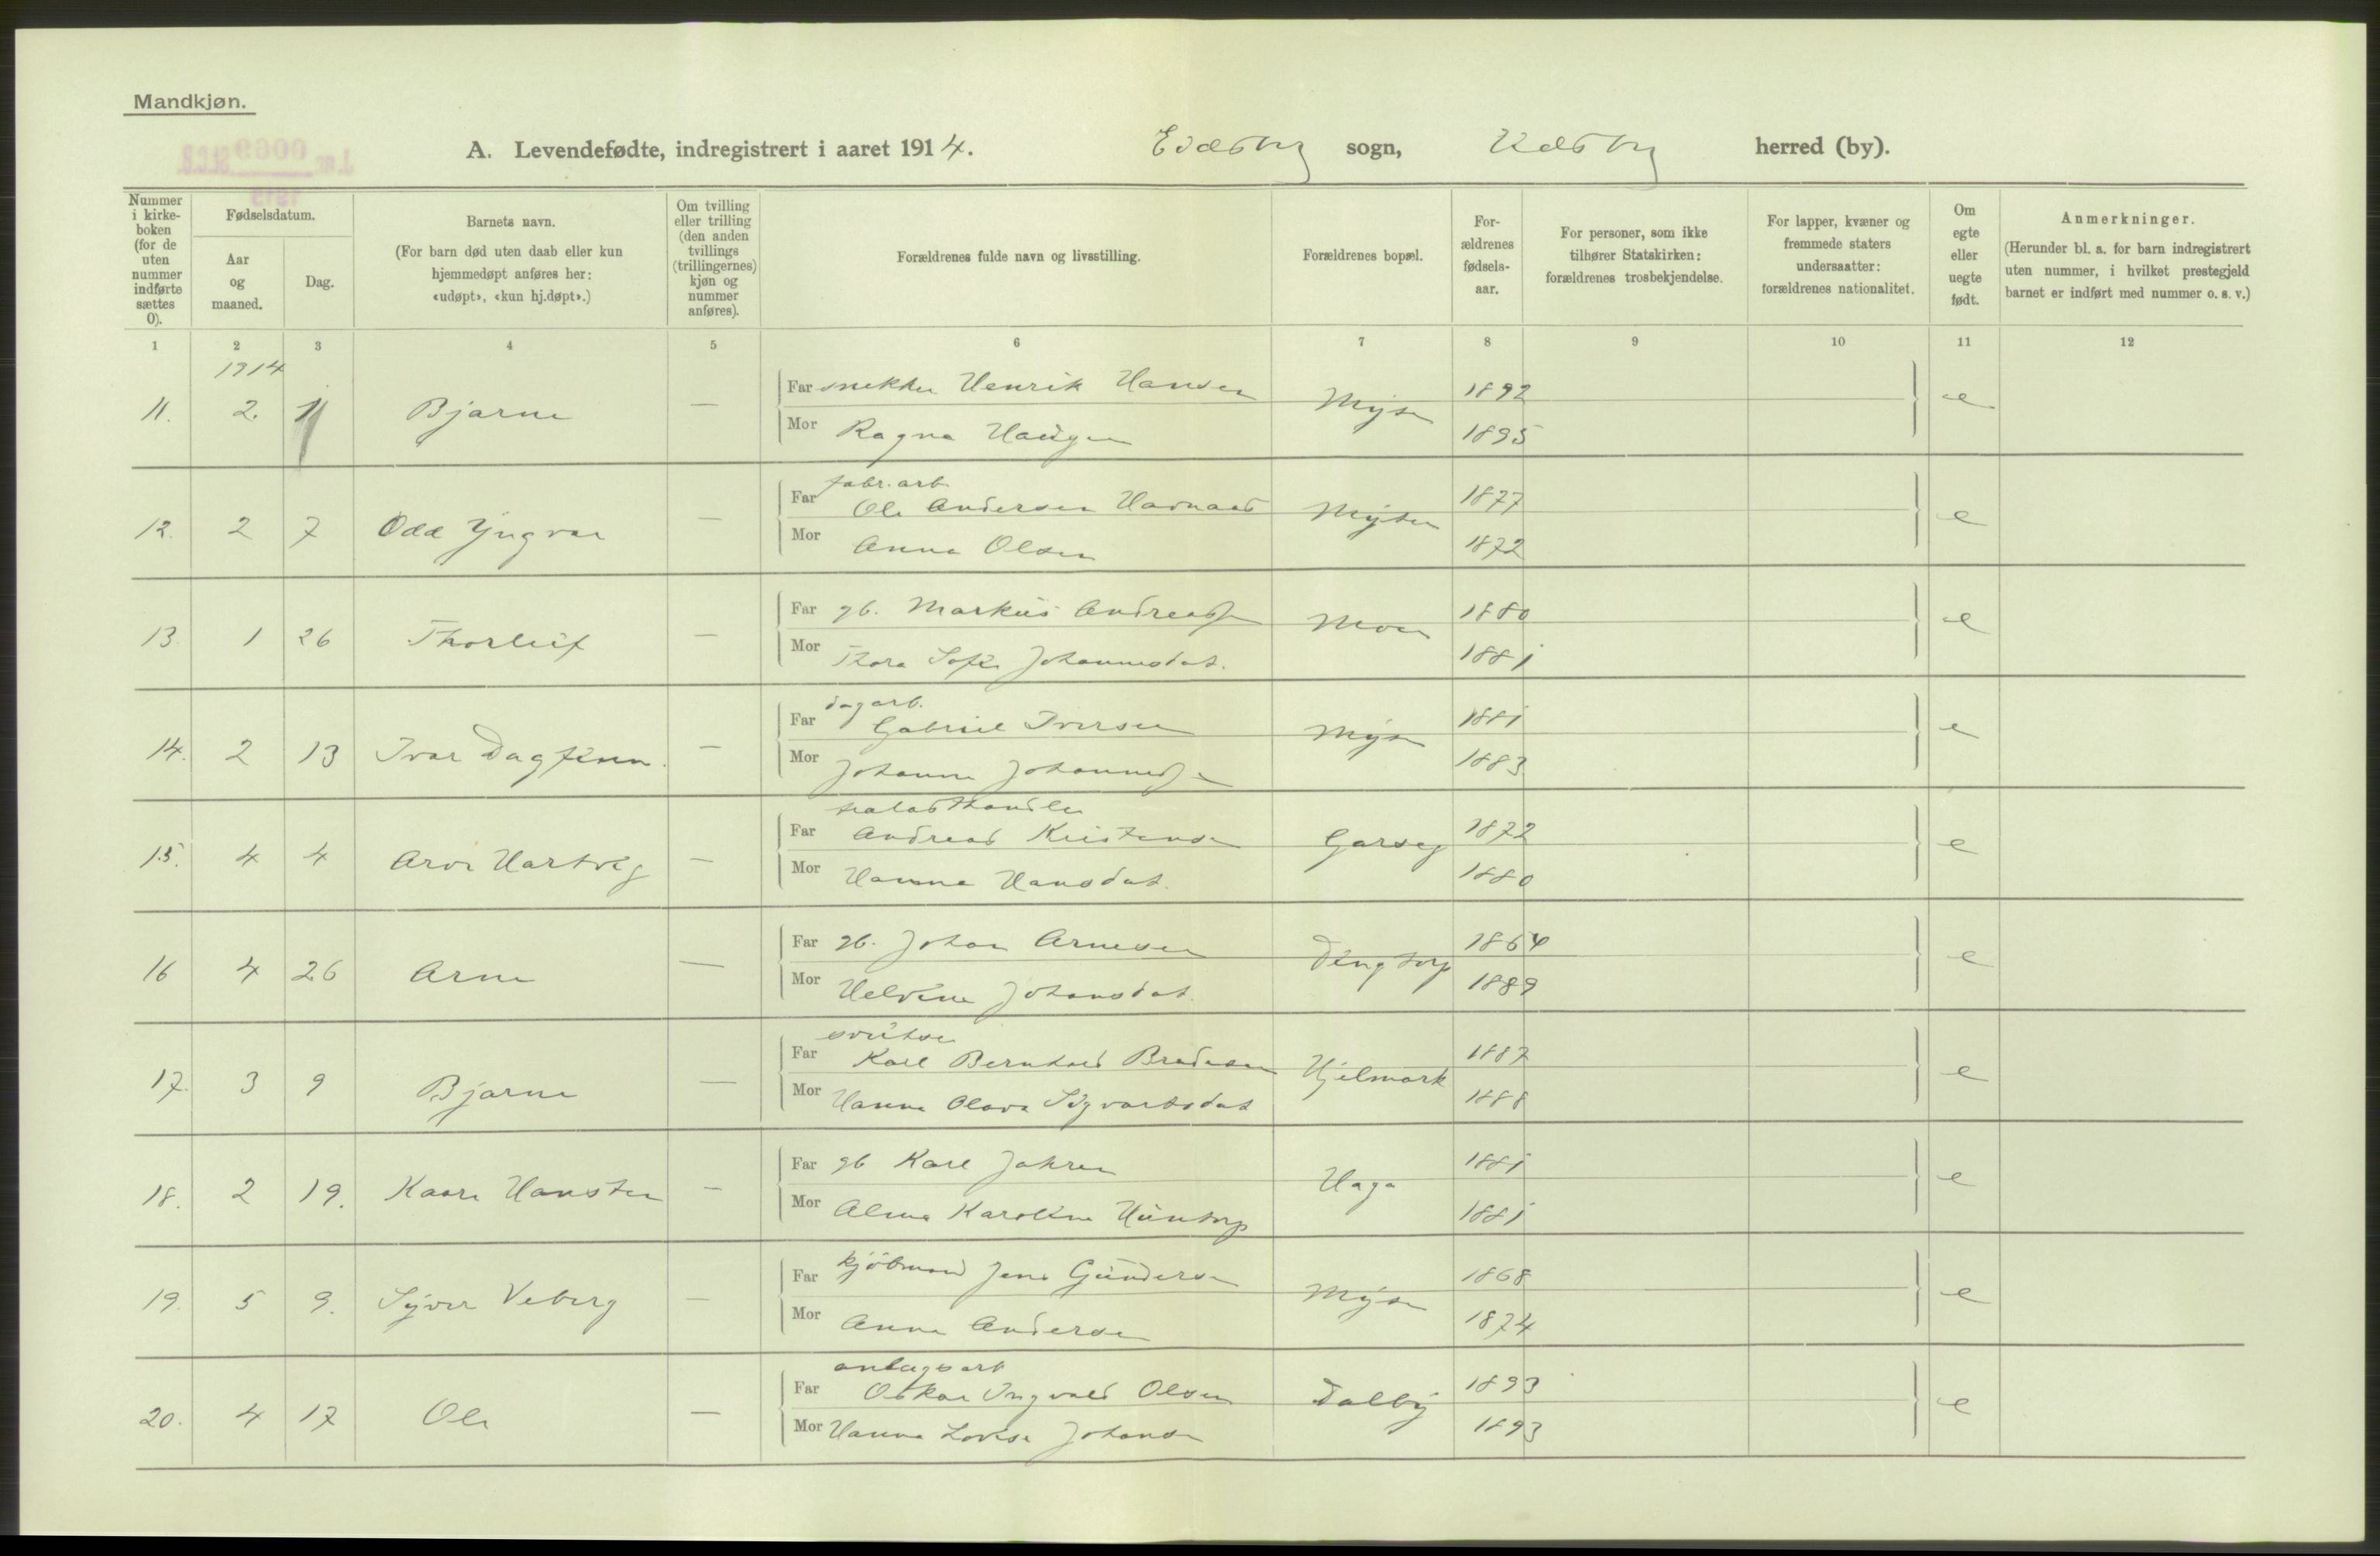 Mandkjøn.
A. Levendefødte, indregistrert i aaret 1914. Eidsberg sogn, herred (by).
Nummer i kirke-boken (for de uten nummer indførte sættes 0).
Fødselsdatum.
Aar og maaned.
Dag.
Barnets navn.
(For barn død uten daab eller kun hjemmedøpt anføres her: «udøpt», «kun hj.døpt».)
Om tvilling eller trilling (den anden tvillings (trillingernes) kjøn og nummer anføres).
Forældrenes fulde navn og livsstilling.
Forældrenes bopæl.
For-ældrenes fødsels-aar.
For personer, som ikke tilhører Statskirken: forældrenes trosbekjendelse.
For lapper, kvæner og fremmede staters undersaatter: forældrenes nationalitet.
Om egte eller uegte født.
Anmerkninger.
(Herunder bl. a. for barn indregistrert uten nummer, i hvilket prestegjeld barnet er indført med nummer o. s. v.)
1 2 3 4 5 6 7 8 9 10 11 12
1914
11. 2. 1 Bjarne — Far snekker Henrik Hansen Mysen 1892 e
Mor Ragna Haugen 1895
fabr. arb.
12. 2 7 Odd Yngvar — Far Ole Andersen Mysen 1877 e
Mor Anna Olsen 1872
13. 1 26 Thorleif — Far gb. Markus Andreassen Moen 1880 e
Mor Thora Sofie Johannesdat. 1881
dagarb.
14. 2 13 Ivar Dagfinn. — Far Gabriel Iversen Mysen 1881 e
Mor Johanne Johannessen 1883
15. 4 4 Arve Hartvig — Far Andreas Kristensen Garseg 1872 e
Mor Hanna Hansdat. 1880
16 4 26 Arne — Far gb. Johan Arnesen 1864 e
Mor Helvine Johansdat. 1889
sveitser
17. 3 9 Bjarne — Far Karl Bernhard Hjelmark 1887 e
Mor Hanna Olava Sigvartsdat 1888
18. 2 19. Kaare Hansten — Far gb Karl Jahren Haga 1881 e
Mor Alma Karoline Huntorp 1881
19. 5 9. Syver Veberg — Far kjøbmand Jens Gundersen Mysen 1868 e
Mor Anna Andersen 1874
anlægsarb
20. 4 17 Ole — Far Oskar Ingvald Olsen Dalby 1893 e
Mor Hanna Lovise Johansen 1893